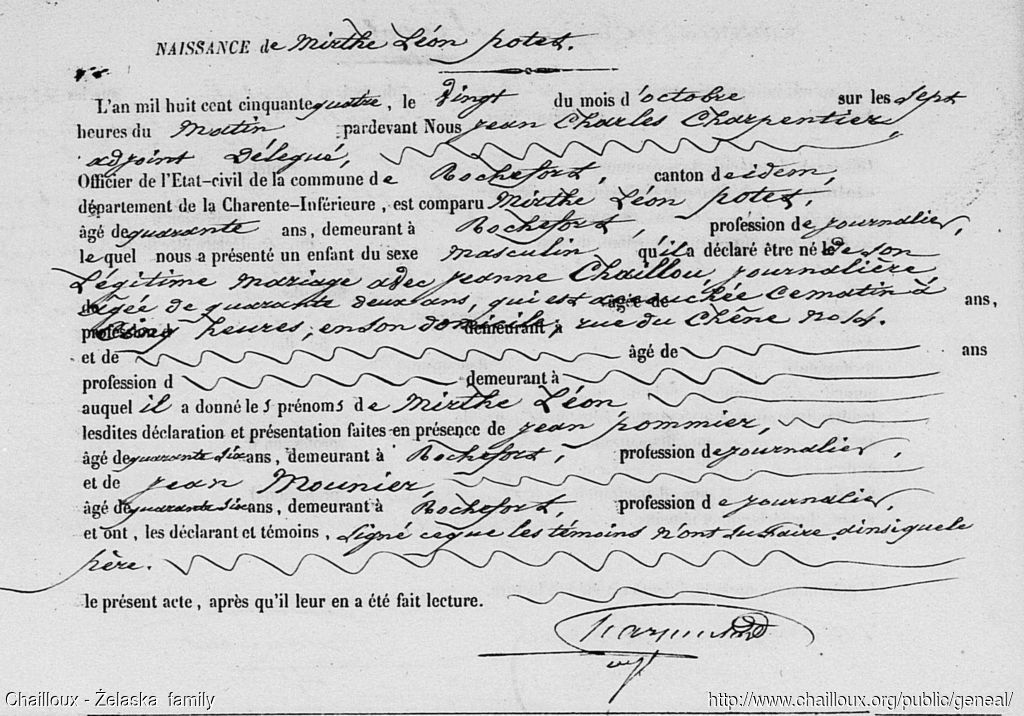 NAISSANCE de Mirthe Léon potet.
L'an mil huit cent cinquante quatre, le Vingt du mois d'octobre sur les Sept
heures du Matin pardevant Nous Jean Charles Charpentier,
adjoint Délegué,
Officier de l'Etat-civil de la commune de Rochefort, canton de idem,
département de la Charente-Inférieure, est comparu Mirthe Léon potet,
âgé de quarante ans, demeurant à Rochefort, profession de journalier,
le quel nous a présenté un enfant du sexe masculin qu'il a déclaré être né de son
Légitime mariage avec Jeanne Chaillou, journalière,
âgée de quarante deux ans, qui est accouchée ce matin à ans,
cinq heures, en son domicile, rue du Chêne no
et de âgé de ans
profession d demeurant à
auquel il a donné les prénoms de Mirthe Léon,
lesdites déclaration et présentation faites en présence de Jean pommier,
âgé de quarante six ans, demeurant à Rochefort, profession de journalier,
et de Jean Mounier,
âgé de quarante six ans, demeurant à Rochefort, profession de journalier,
et ont, les déclarant et témoins, signé ce que les témoins n'ont su faire ainsi que le
père.
le présent acte, après qu'il leur en a été fait lecture.
Chailloux - Želaska family
http://www.chailloux.org/public/geneal/